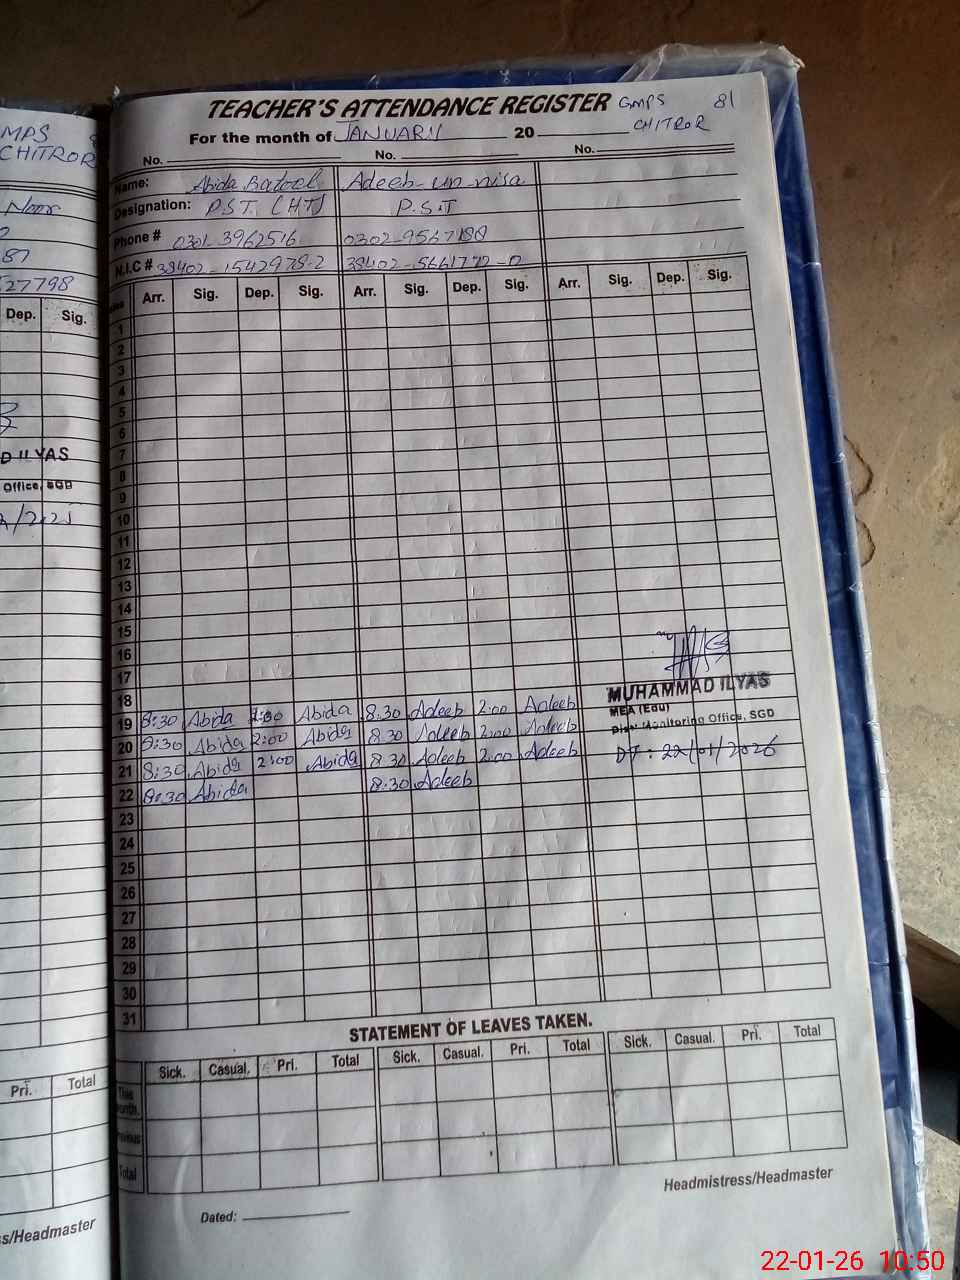 MPS
CHITROR
Noor
2
87
27798
Dep. Sig.
D ILYAS
Office, SGD
Pri. Total
ss/Headmaster
TEACHER'S ATTENDANCE REGISTER GMPS 81
For the month of JANUARY 20 CHITROR
No. No. No.
Name: Abida Batool Adeeb-un-nisa
Designation: P.S.T. (HT) P.S.T
Phone # 0301-3962516 0302-9567188
N.I.C # 38402-1542978-2 38402-5661772-0
Arr. Sig. Dep. Sig. Arr. Sig. Dep. Sig. Arr. Sig. Dep. Sig.
1
2
3
4
5
6
7
8
9
10
11
12
13
14
15
16
17
18
MUHAMMAD ILYAS
MEA (Edu)
19 8:30 Abida 2:00 Abida 8.30 Adeeb 2:00 Adeeb
Distt Monitoring Office, SGD
20 8:30 Abida 2:00 Abida 8.30 Adeeb 2:00 Adeeb
DT: 22/01/2026
21 8:30 Abida 2:00 Abida 8.30 Adeeb 2:00 Adeeb
22 8:30 Abida 8:30 Adeeb
23
24
25
26
27
28
29
30
31
STATEMENT OF LEAVES TAKEN.
Sick. Casual. Pri. Total Sick. Casual. Pri. Total Sick. Casual. Pri. Total
This month.
Previous
Total
Headmistress/Headmaster
Dated:
22-01-26 10:50